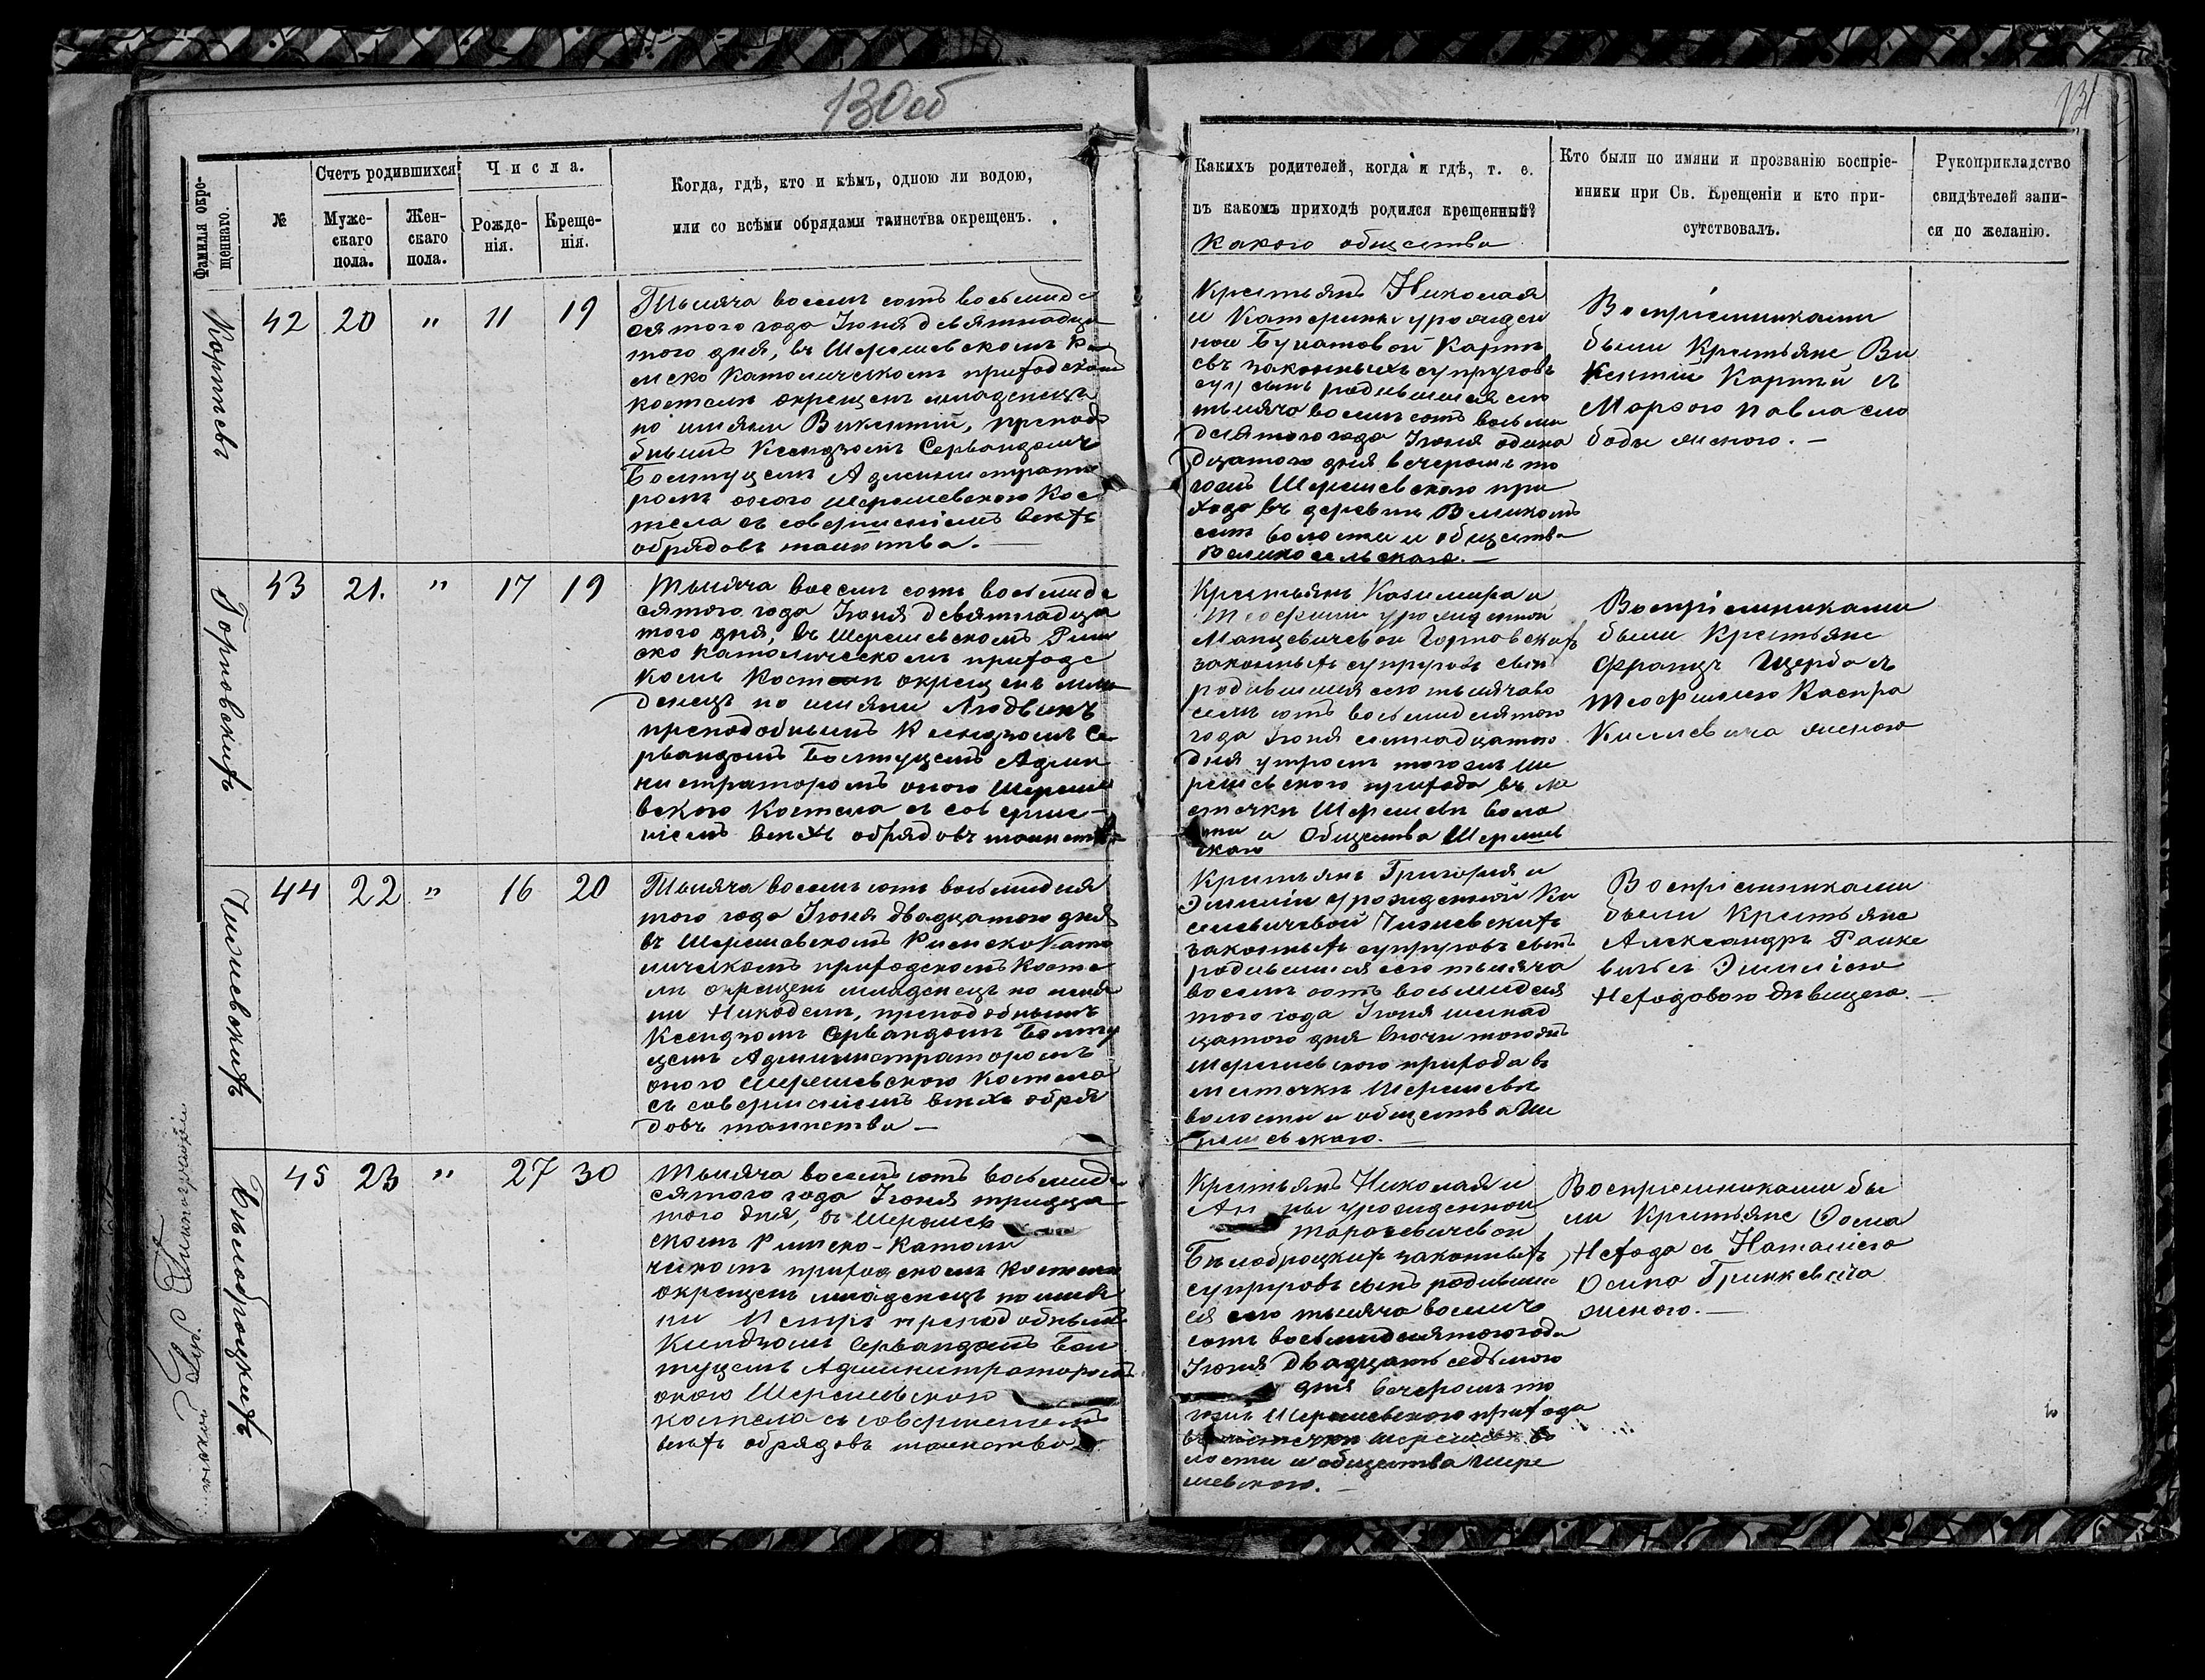 130 об
131
Фамилія окре-
щеннаго.
№
Счетъ родившихся
Муже-
скаго
пола.
Жен-
скаго
пола.
Числа.
Рожде-
нія.
Креще-
нія.
Когда, гдѣ, кто и кѣмъ, одною ли водою,
или со всѣми обрядами таинства окрещенъ.
Какихъ родителей, когда и гдѣ, т. е.
въ какомъ приходѣ родился крещенный?
Какого общества
Кто были по имяни и прозванію воспріе-
мники при Св. Крещеніи и кто при-
сутствовалъ.
Рукоприкладство
свидѣтелей запи-
си по желанію.
42 20 " 11 19
Тысяча восемь сотъ восьмиде
сятого года Іюня девятнадца
того дня, въ Шерешевскомъ Ри
мско Католическомъ приходскомъ
костелѣ окрещенъ младенецъ
по имяни Викентій, препод
бнымъ Ксендзомъ Сервандомъ
Болтуцемъ Администрато
ромъ оного Шерешевского Кос
тела съ совершеніемъ всехъ
обрядовъ таинства. —
Крестьянъ Николая
и Катерины урожден
ной Карпъ
евъ законныхъ супруговъ
сынъ родившійся сего
тысяча восемь сотъ восьми
десятого года Іюня одина
дцатого дня вечеромъ то
гожъ Шерешевского при
хода въ деревнѣ Великомъ
селѣ волости и общества
Великосельского. —
Воспріемниками
были Крестьяне Ви
кентій Карпѣй съ
Марьею Павла сло
боды женою. —
43 21. " 17 19
Тысяча восемь сотъ восьмиде
сятого года Іюня девятнадца
того дня, въ Шерешевскомъ Рим
ско Католическомъ приходс
комъ Костелѣ окрещенъ мла
денецъ по имяни Людвикъ
преподобнымъ Ксендзомъ Се
рвандомъ Болтуцемъ Адми
нистраторомъ оного Шереше
вского Костела съ соверше-
ніемъ всехъ обрядовъ таинства
Крестьянъ Казимира и
Теофиліи урожденной
Манцевичевой Горновскихъ
законныхъ супруговъ сынъ
родившійся сего тысяча во
семь сотъ восьмидесятого
года Іюня семнадцатого
дня утромъ тогожъ Ше
решевского прихода въ ме
стечкѣ Шерешевѣ воло
сти и Общества Шерешев
ского
Воспріемниками
были Крестьяне
Францъ Щерба съ
Теофилею Каспра
Кислевича женою
44 22 " 16 20
Тысяча восемь сотъ восьмидеся
того года Іюня двадцатого дня
въ Шерешевскомъ Римско Като
лическомъ приходскомъ Косте
лѣ окрещенъ младенецъ по имя
ни Никодемъ, преподобнымъ
Ксендзомъ Сервандомъ Болту
цемъ Администраторомъ
оного Шерешевского Костела
съ совершеніемъ всехъ обря
довъ таинства —
Крестьянъ Григорія и
Эмиліи урожденной Ки
селевичевой Чижевскихъ
законныхъ супруговъ сынъ
родившійся сего тысяча
восемь сотъ восьмидеся
того года Іюня шестнад
цатого дня вночи тогожъ
Шерешевского прихода въ
местечкѣ Шерешевѣ
волости и общества Ше
решевского. —
Воспріемниками
были Крестьяне
Александръ Ранке
вичъ съ Эмиліею
Неходовою дѣвицею. —
45 23 " 27 30
Тысяча восемь сотъ восьмиде
сятого года Іюня тридца
того дня, въ Шерешев
скомъ Римско-Католи
ческомъ приходскомъ Костелѣ
окрещенъ младенецъ по имя
ни Петръ преподобнымъ
Ксендзомъ Сервандомъ Бол
туцемъ Администраторомъ
оного Шерешевского
костела съ совершеніемъ
всехъ обрядовъ таинства
Крестьянъ Николая и
Анны урожденной
Тарасевичевой
Бѣлоброцкихъ законныхъ
супруговъ сынъ родивший
ся сего тысяча восемь
сотъ восьмидесятого года
Іюня двадцать седьмого
дня вечеромъ то
гожъ Шерешевского прихода
въ местечкѣ Шерешевѣ во
лости и общества Шере
шевского. —
Воспріемниками бы
ли Крестьяне Фома
Нехода съ Наталіею
Осипа Гринкевича
женою. —
Карпѣевъ
Горновскихъ
Чижевскихъ
Бѣлоброцкихъ